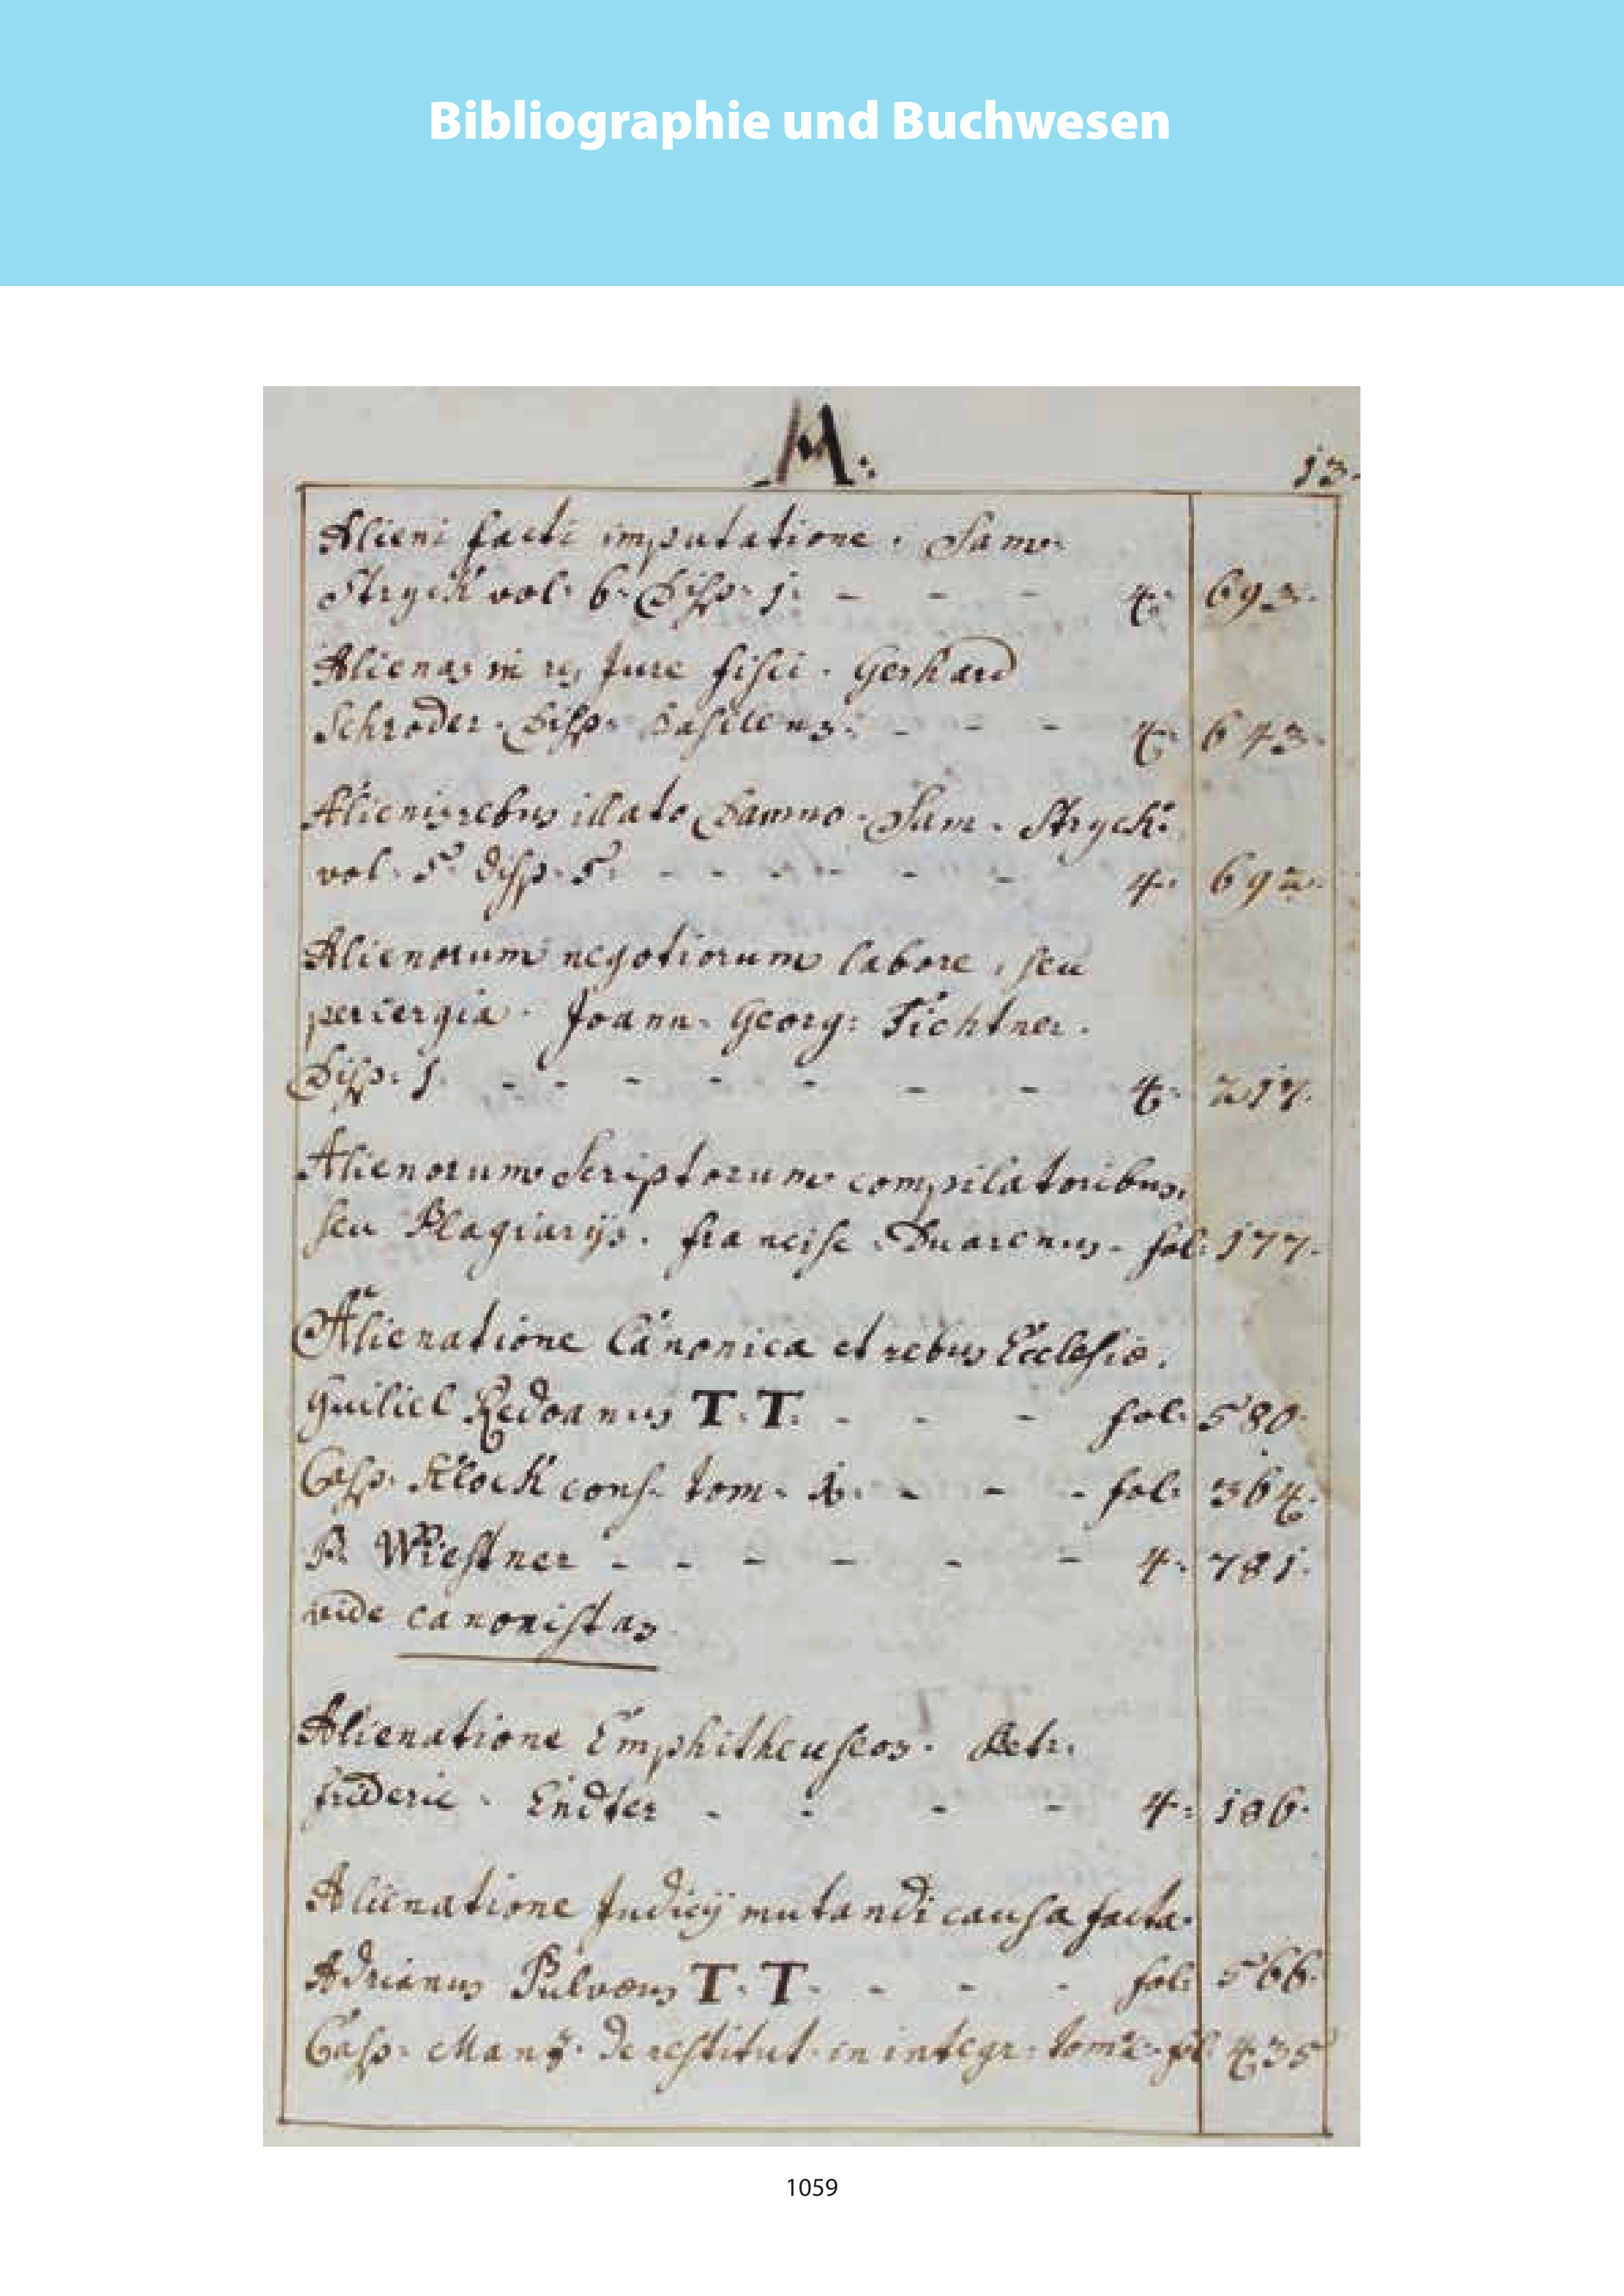 Bibliographie und Buchwesen
A:
13.
Alieni facti imputatione. Sam:
Stryck vol: 6: Diſp: 1: - - - 4: 693.
Alienas in res Jure fiſci. Gerhard
Schröder. Diſp: Baſileens: - - - 4: 643.
Alienis rebus illato Damno. Sam. Stryck:
vol: 5. diſp: 5. - - - - - - 4: 692.
Alienorum negotiorum labore, ſeu
periergia. Joann. Georg: Fichtner.
Diſp: 1. - - - - - - - 4: 217.
Alienorum Scriptorum compilatoribus,
ſeu Plagiarijs. franciſc. Duarenus - fol: 177.
Alienatione Canonica et rebus Eccleſiæ.
Guiliel Redoanus T. T. - - - fol: 580.
Caſp. Klock conſ. tom. 1. - - - fol: 364.
R. Wieſtner - - - - - - 4: 781.
vide canoniſtas
Alienatione Emphitheuſeos. Petr.
frideric. Endter - - - - 4: 186.
Alienatione Judicij mutandi cauſa facta.
Adrianus Pulvæus T. T. - - - fol: 566.
Caſp. Manz. de reſtitut. in integr. tom: 2. fol 435
1059